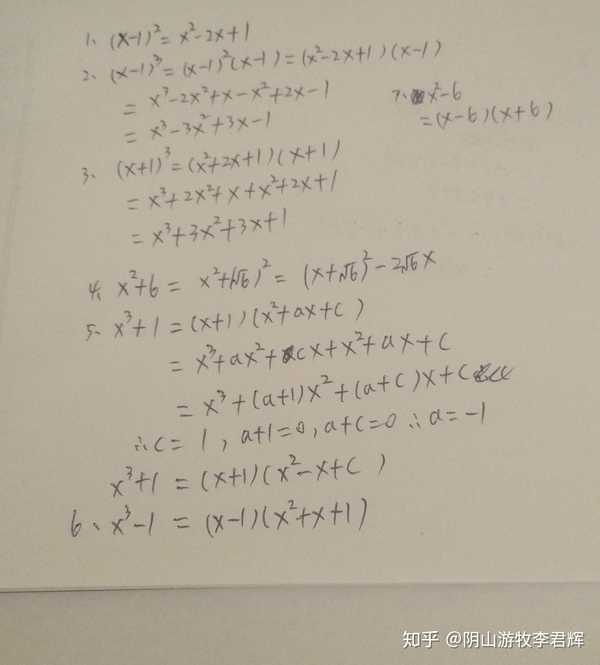 1、(x-1)²=x²-2x+1
2、(x-1)³=(x-1)²(x-1)=(x²-2x+1)(x-1)
=x³-2x²+x-x²+2x-1
=x³-3x²+3x-1
3、(x+1)³=(x²+2x+1)(x+1)
=x³+2x²+x+x²+2x+1
=x³+3x²+3x+1
4、x²+6=x²+(√6)²=(x+√6)²-2√6x
5、x³+1=(x+1)(x²+ax+c)
=x³+ax²+cx+x²+ax+c
=x³+(a+1)x²+(a+c)x+c
∴c=1,a+1=0,a+c=0∴a=-1
x³+1=(x+1)(x²-x+c)
6、x³-1=(x-1)(x²+x+1)
7、x²-6
=(x-6)(x+6)
知乎 @阴山游牧李君辉